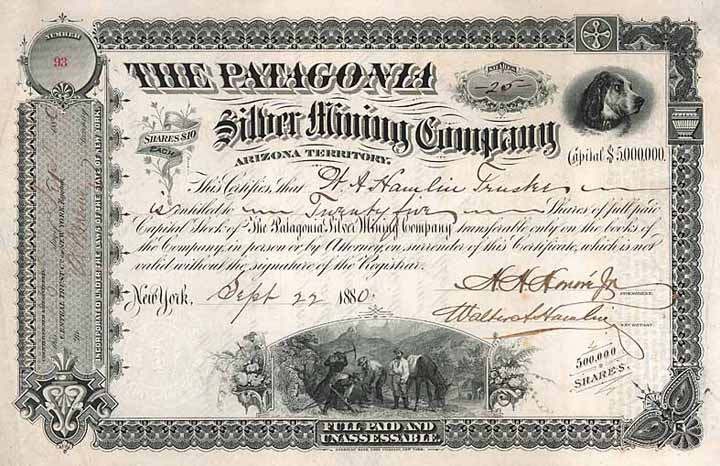 NUMBER
93
THE PATAGONIA
SHARES
25
Silver Mining Company
SHARES $10
EACH
ARIZONA TERRITORY.
Capital $5,000,000.
This Certifies, that W. A. Hamlin Trustee
is entitled to Twenty five Shares of full paid
Capital Stock of The Patagonia Silver Mining Company transferable only on the books of
the Company, in person or by Attorney, on surrender of this Certificate, which is not
valid without the signature of the Registrar.
New York, Sept 22 1880.
H. H. Honoré Jr
PRESIDENT.
Walter A. Hamlin
SECRETARY.
500,000
SHARES.
FULL PAID AND
UNASSESSABLE.
AMERICAN BANK NOTE COMPANY, NEW YORK.
INCORPORATED UNDER THE LAWS OF THE STATE OF NEW YORK.
CENTRAL TRUST CO. OF NEW YORK